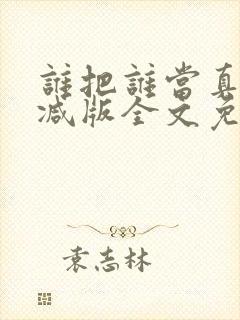 誰把誰當真
减版全文免
袁志林